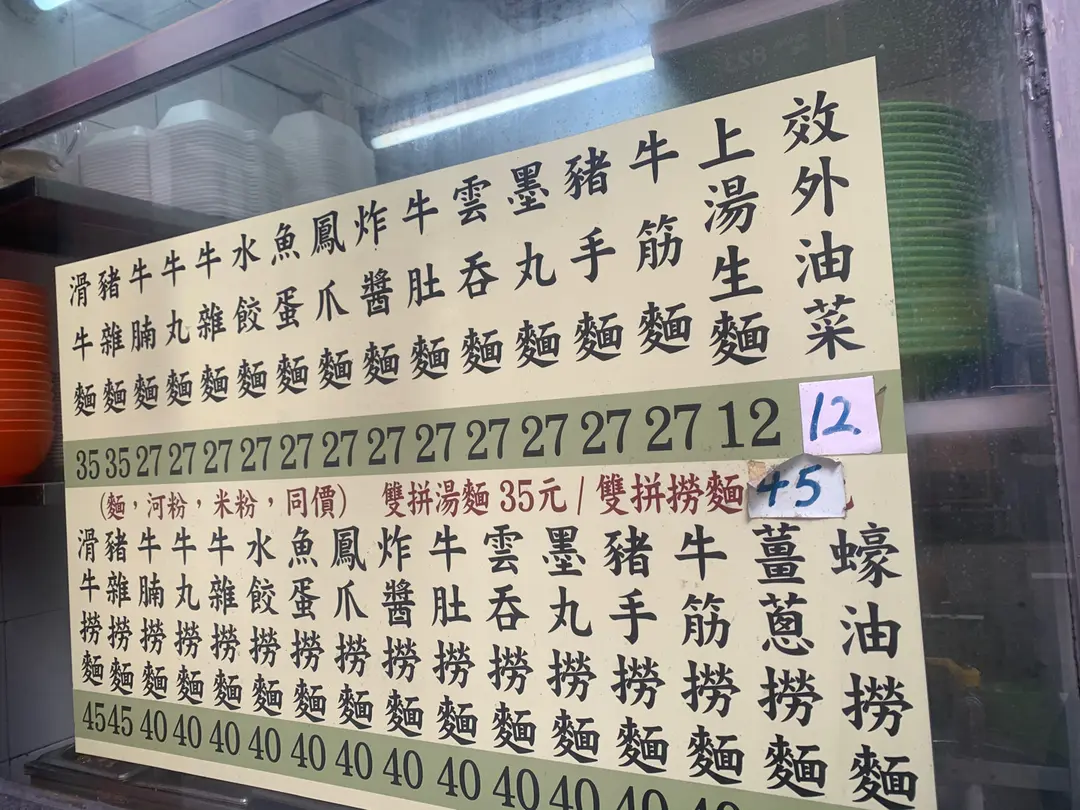 效外油菜
上湯生麵
牛筋麵
豬手麵
墨丸麵
雲吞麵
牛肚麵
炸醬麵
鳳爪麵
魚蛋麵
水餃麵
牛雜麵
牛丸麵
牛腩麵
豬雜麵
滑牛麵
35 35 27 27 27 27 27 27 27 27 27 27 27 27 12 12
(麵，河粉，米粉，同價) 雙拼湯麵 35元 / 雙拼撈麵 45
蠔油撈麵
薑葱撈麵
牛筋撈麵
豬手撈麵
墨丸撈麵
雲吞撈麵
牛肚撈麵
炸醬撈麵
鳳爪撈麵
魚蛋撈麵
水餃撈麵
牛雜撈麵
牛丸撈麵
牛腩撈麵
豬雜撈麵
滑牛撈麵
45 45 40 40 40 40 40 40 40 40 40 40 40 40